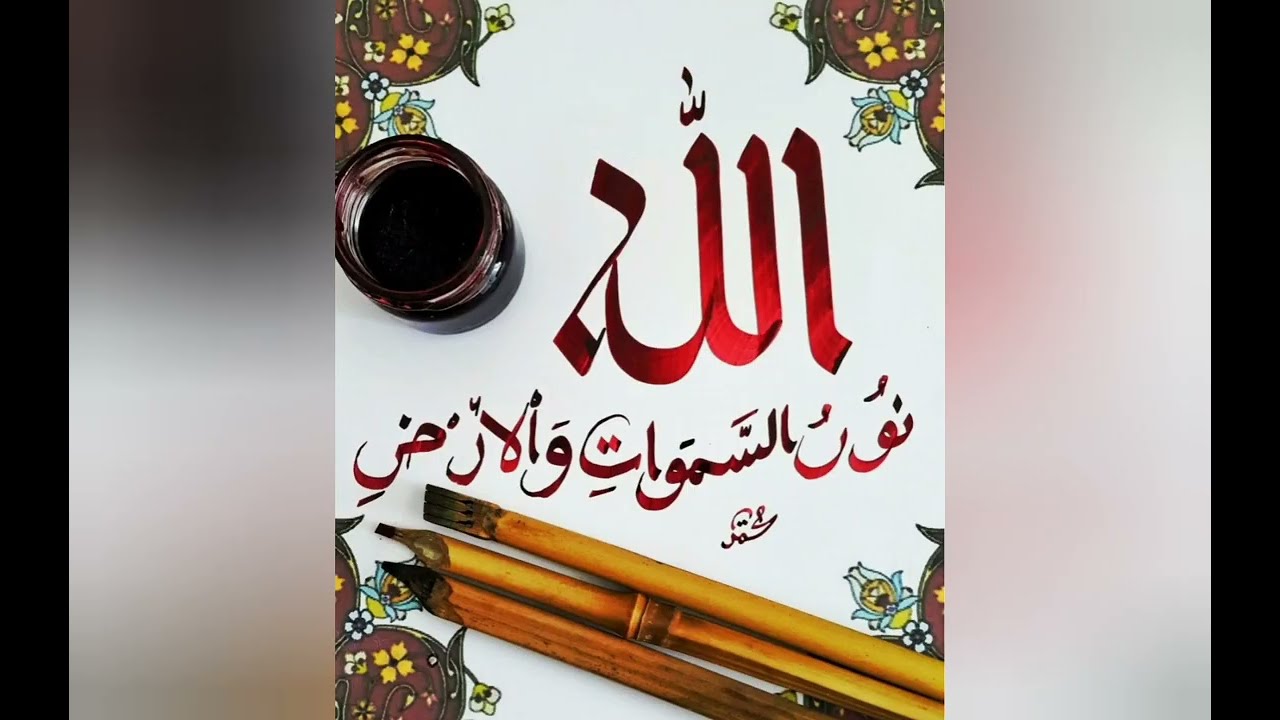 الله
نُوُرُ السَّمَوَاتِ وَالْارْضِ
محمد